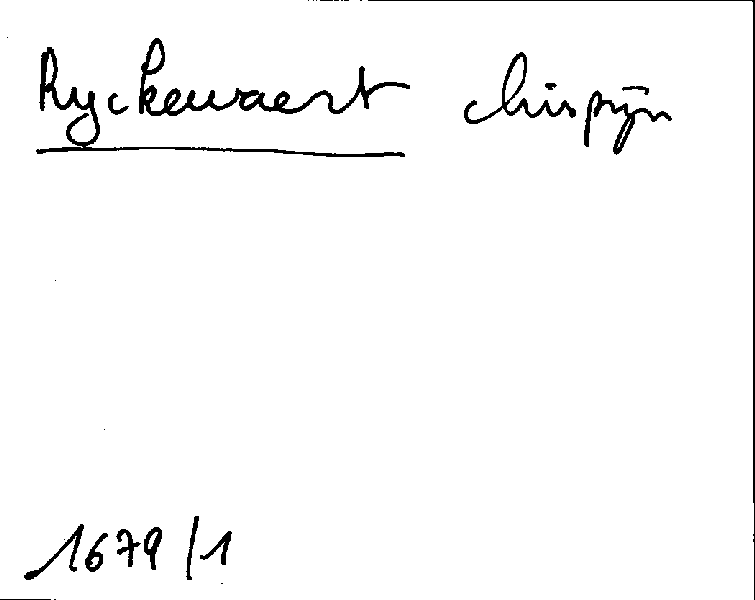 Ryckewaert chrispijn
1679/1